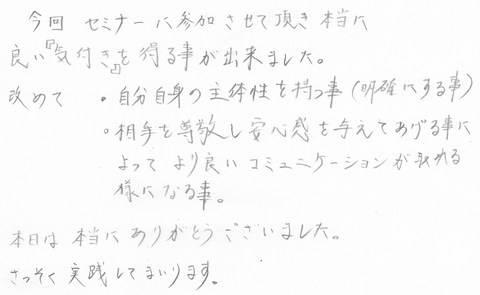 今回 セミナーに参加させて頂き本当に
良い『気付き』を得る事が出来ました。
改めて ・自分自身の主体性を持つ事(明確にする事)
・相手を尊敬し安心感を与えてあげる事に
よって より良いコミュニケーションが取れる
様になる事。
本日は 本当に ありがとうございました。
さっそく実践してまいります。